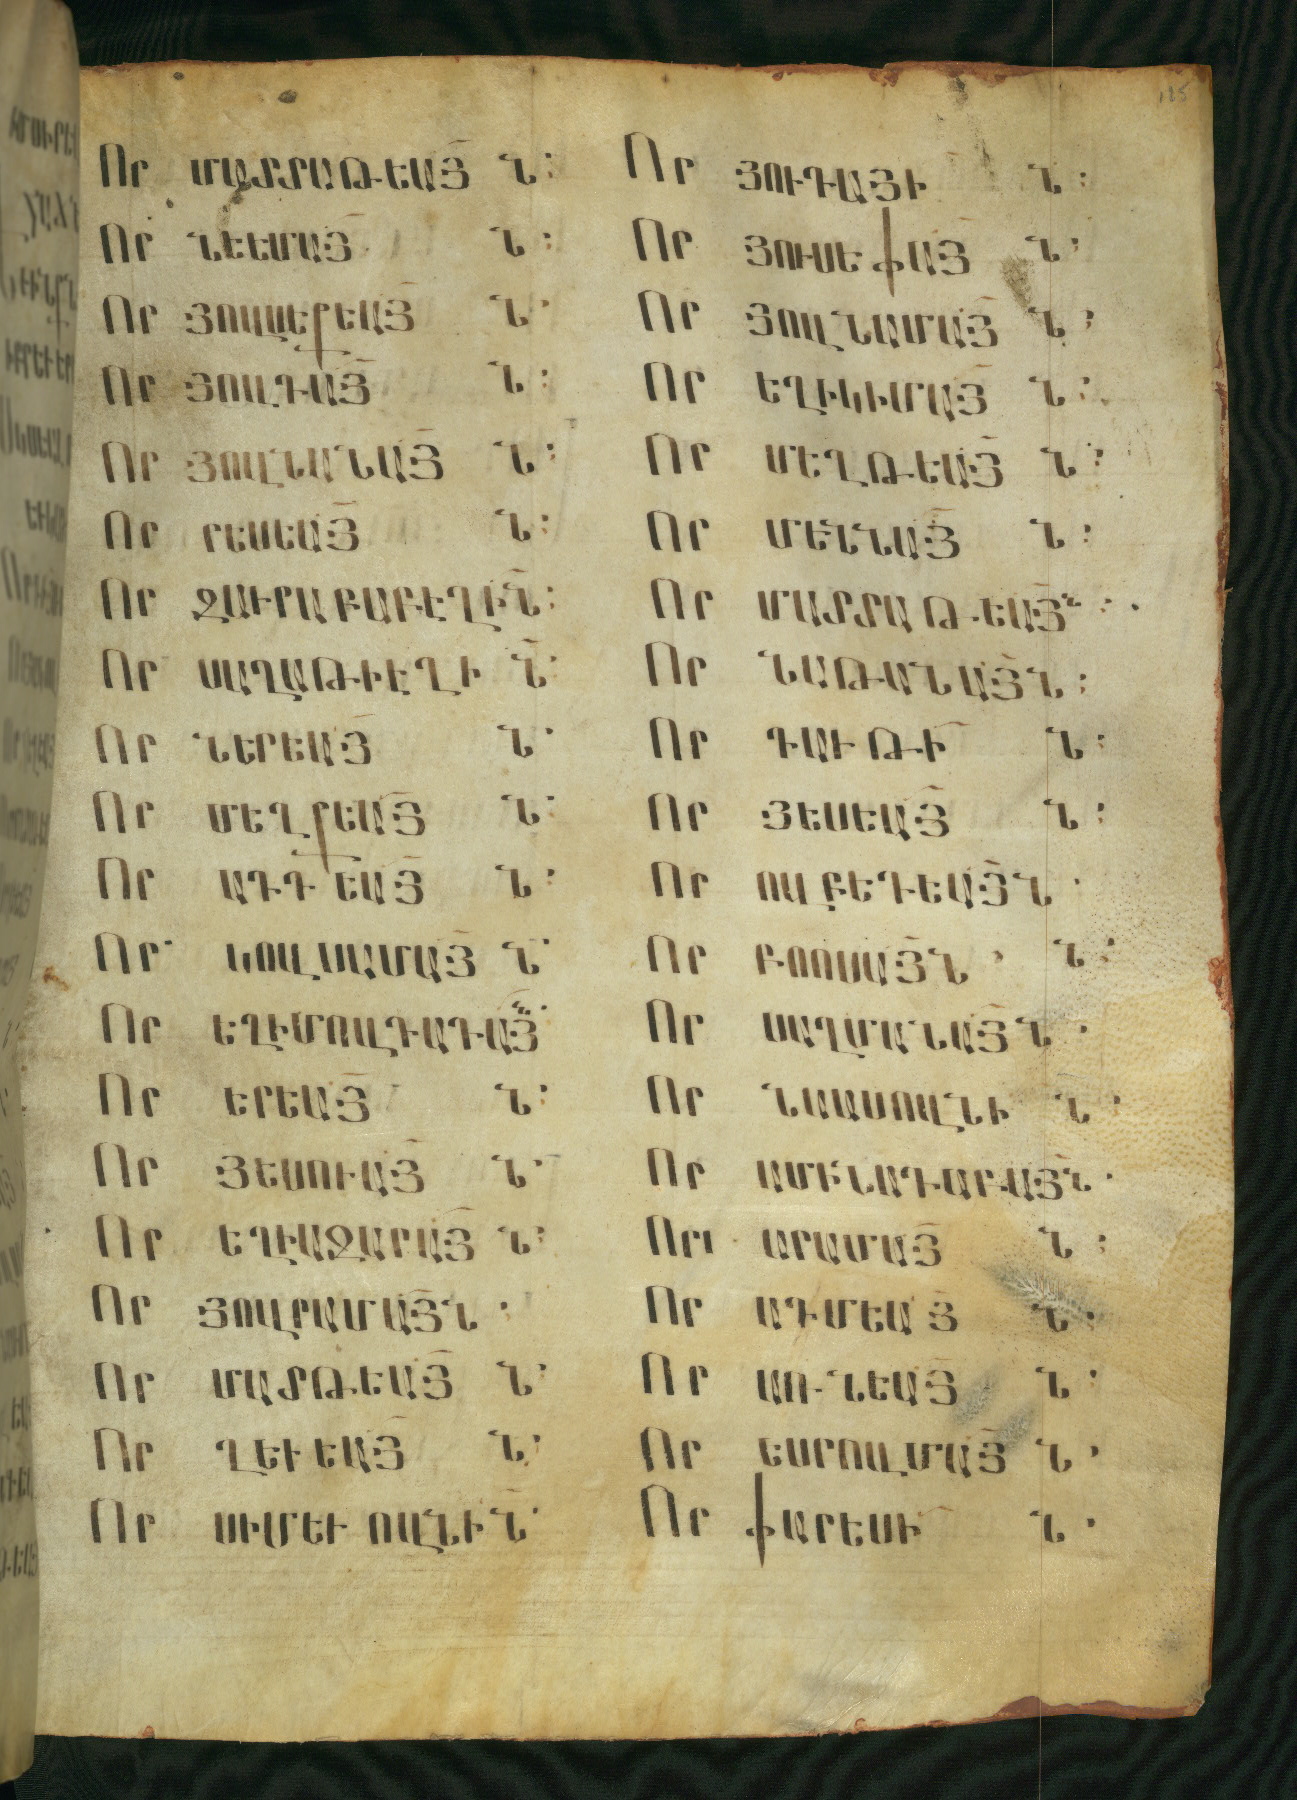 Որ ՄԱՏՏԱԹԵԱՅ Ն։
Որ ՆԵԵՄԱՅ Ն։
Որ ՅՈՎՍԵՔԵԱՅ Ն։
Որ ՅՈՎԴԱՅ Ն։
Որ ՅՈՎՆԱՆԱՅ Ն։
Որ ՐԵՍԵԱՅ Ն։
Որ ԶԱՒՐԱԲԱԲԷՂԻՆ։
Որ ՍԱՂԱԹԻԷՂԻ Ն։
Որ ՆԵՐԵԱՅ Ն։
Որ ՄԵՂՔԵԱՅ Ն։
Որ ԱԴԴԵԱՅ Ն։
Որ ԿՈՎՍԱՄԱՅ Ն։
Որ ԵՂԻՄՈՎԴԱԴԱՅՆ։
Որ ԵՐԵԱՅ Ն։
Որ ՅԵՍՈՒԱՅ Ն։
Որ ԵՂԻԱԶԱՐԱՅ Ն։
Որ ՅՈՎՐԱՄԱՅՆ։
Որ ՄԱՏԹԵԱՅ Ն։
Որ ՂԵՒԵԱՅ Ն։
Որ ՍԻՄԵՒՈՎՆԻՆ։
Որ ՅՈՒԴԱՅԻ Ն։
Որ ՅՈՒՍԵՓԱՅ Ն։
Որ ՅՈՎՆԱՄԱՅ Ն։
Որ ԵՂԻԿԻՄԱՅ Ն։
Որ ՄԵՂԹԵԱՅ Ն։
Որ ՄԵՆՆԱՅ Ն։
Որ ՄԱՏՏԱԹԵԱՅՆ։
Որ ՆԱԹԱՆԱՅՆ։
Որ ԴԱՒԹԻ Ն։
Որ ՅԵՍԵԱՅ Ն։
Որ ՈՎԲԵԴԵԱՅՆ։
Որ ԲՈՈՍԱՅՆ Ն։
Որ ՍԱՂՄԱՆԱՅՆ։
Որ ՆԱԱՍՈՎՆԻ Ն։
Որ ԱՄԻՆԱԴԱԲԱՅՆ։
Որ ԱՐԱՄԱՅ Ն։
Որ ԱԴՄԵԱՅ Ն։
Որ ԱՌՆԵԱՅ Ն։
Որ ԵՍՐՈՎՄԱՅ Ն։
Որ ՓԱՐԵՍԻ Ն։